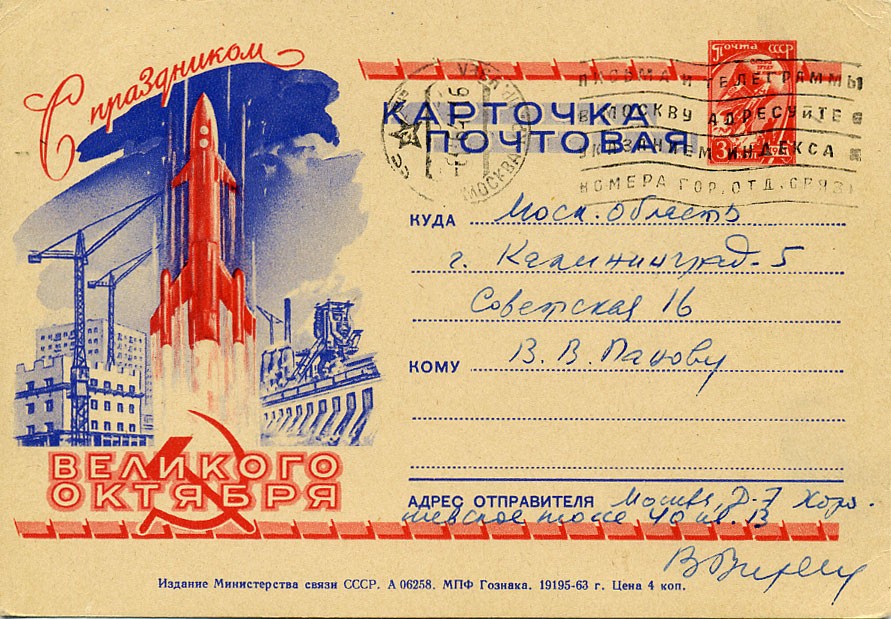 С праздником
Почта СССР
КАРТОЧКА
ПОЧТОВАЯ
ПИСЬМА И ТЕЛЕГРАММЫ
В МОСКВУ АДРЕСУЙТЕ С
УКАЗАНИЕМ ИНДЕКСА И
НОМЕРА ГОР. ОТД. СВЯЗИ
МОСКВА
КУДА Моск. область
г. Калининград-5
Советская 16
КОМУ В. В. Панову
ВЕЛИКОГО
ОКТЯБРЯ
АДРЕС ОТПРАВИТЕЛЯ Москва, Д-7 Хоро-
шевское шоссе 40 кв. 13
Издание Министерства связи СССР. А 06258. МПФ Гознака. 19195-63 г. Цена 4 коп.